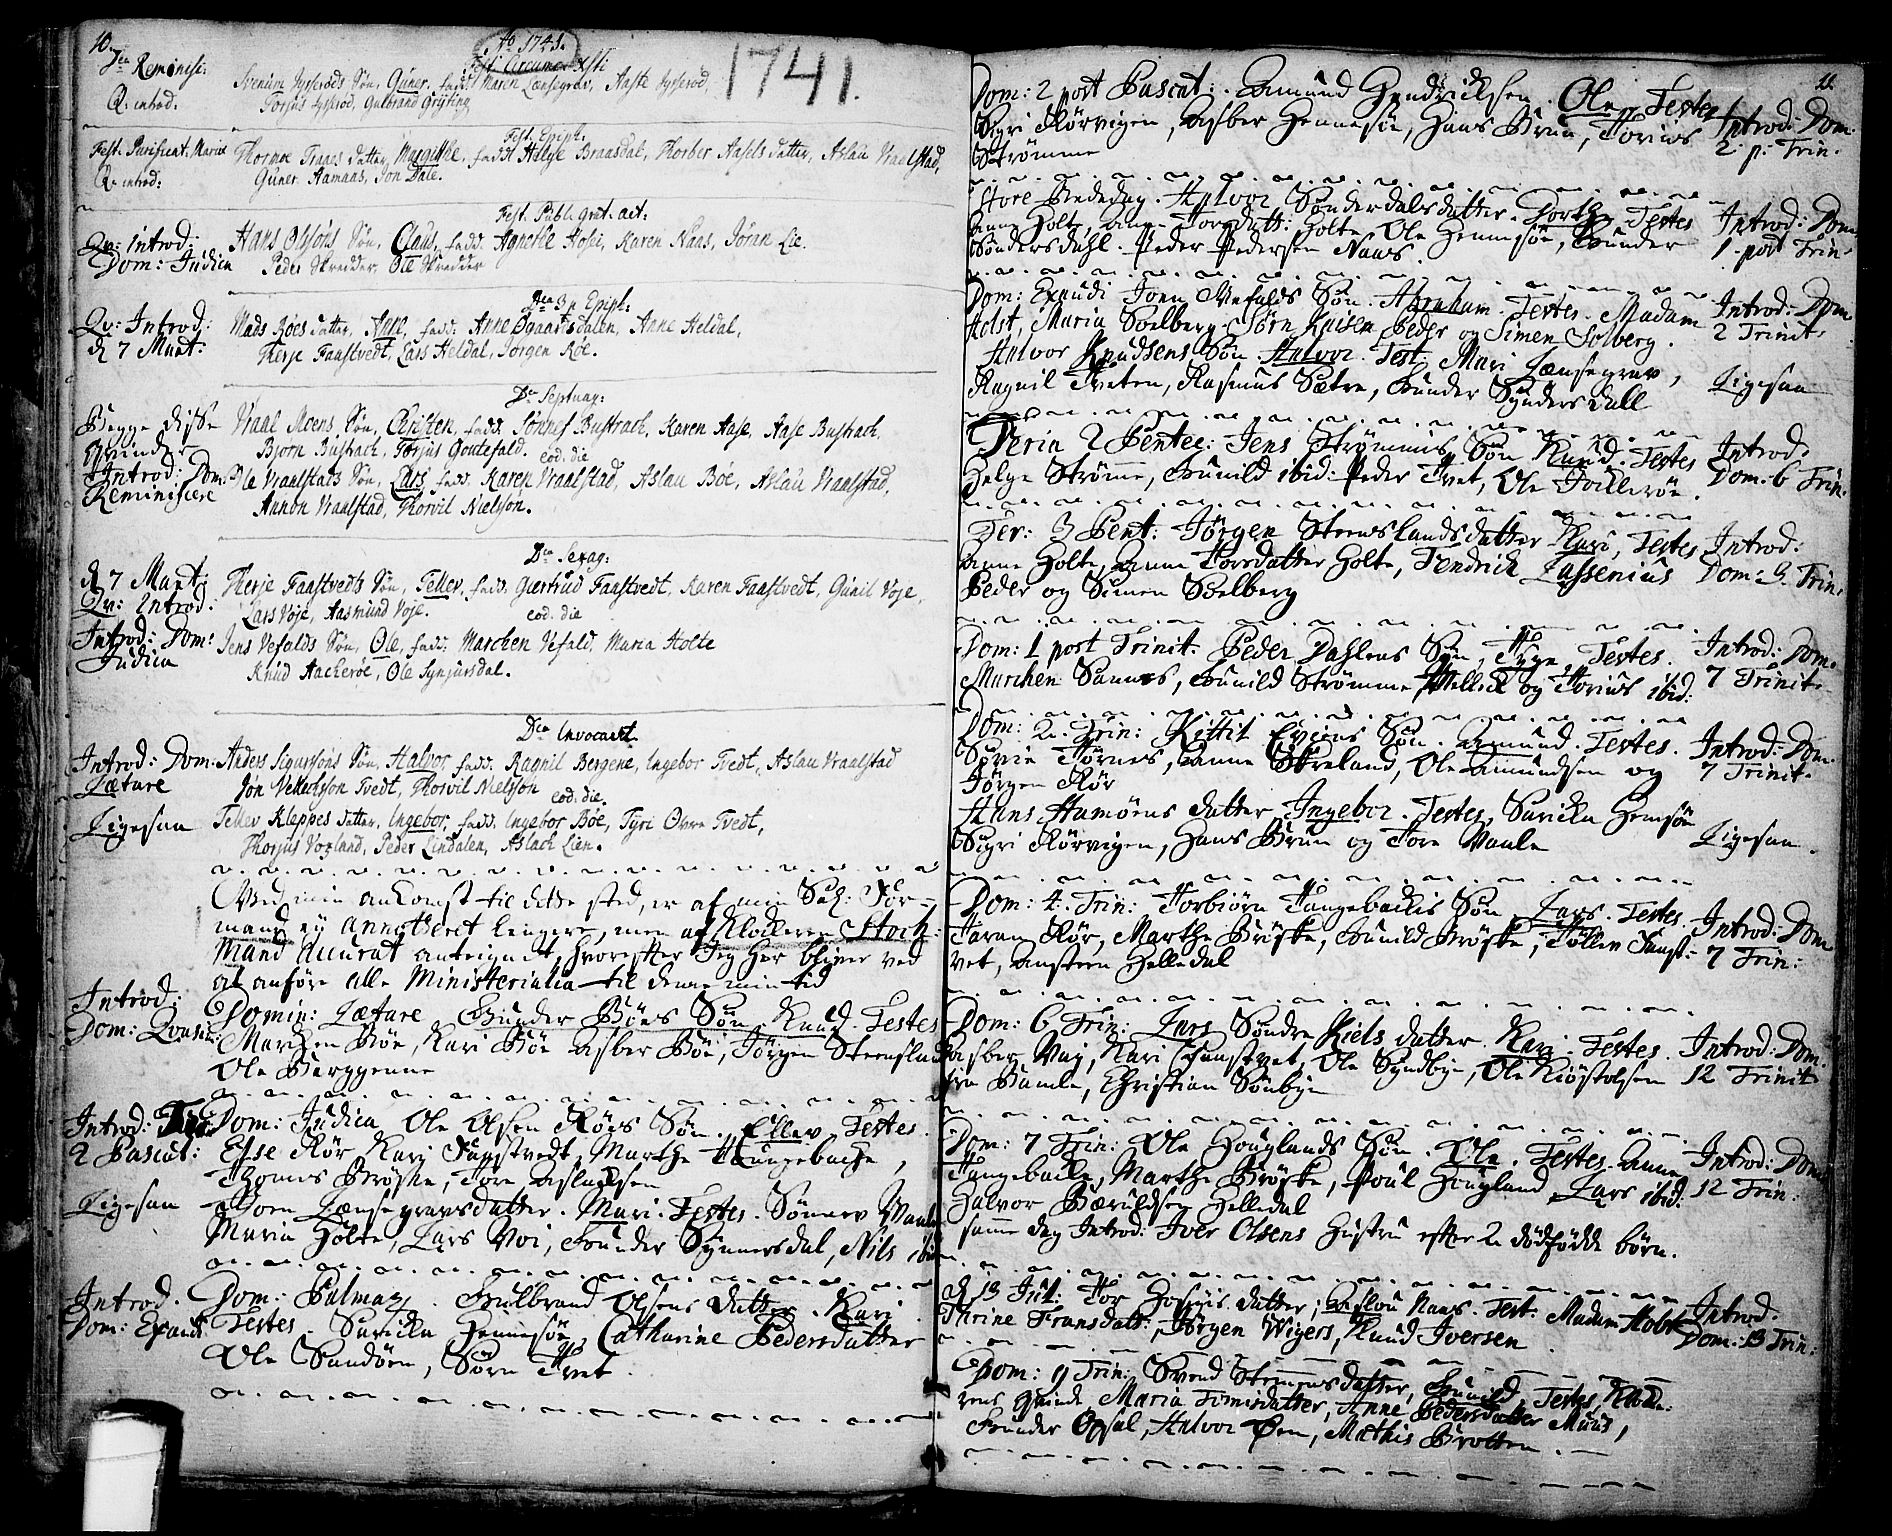 10.
Ao 1741.
1741.
Fest: Circumc: Xsti
Dca Reminisc:
Q. introd.
Svenum Jysserøds Søn, Guner. fadd. Maren Lænsegrav, Aaste Jysserød,
Torjus Jysserød, Gulbrand Grijting
Fest. Epiph.
Fest. Purificat. Mariæ
Q. introd:
Thormoe Traaes datter, Margitthe, fadd. Helge Braasdal, Thorber Aasels datter, Aslau Vraalstad,
Guner Aamaas, Jon Dale.
Fest. Publ. grat. act:
Qv: introd:
Dom: Judica
Hans Olsøns Søn, Claus, fadd. Agnethe Hofei, Karen Naas, Jøran Lie.
Peder Skredder, Ole Skredder
Dca 3 p Epiph:
Qv: Introd:
d 7 Mart:
Mads Røes datter, Anne, fadd. Anne Øgaardsdalen, Anne Heldal,
Therje Faastvedt, Lars Heldal, Jørgen Røe.
Dca Septuag:
Begge disse
Qvinder
Introd: Dom:
Reminiscere
Vraal Moens Søn, Christen, fadd. Sønnef Bustrach, Karen Aase, Aase Bustrach,
Bjørn Bustrach, Torjus Goutefald.
eod. die
Ole Vraalstads Søn, Lars, fadd. Karen Vraalstad, Aslau Bøe, Aslau Vraalstad,
Annon Vraalstad, Thorvil Nielsøn.
Dca Sexag:
d 7 Mart:
Qv: Introd:
Therje Faastvedts Søn, Tellev, fadd. Giertrud Faastvedt, Karen Faastvedt, Gunil Voje,
Lars Voje, Aasmund Voje.
eod. die
Introd: Dom:
Judica
Jens Vefalds Søn, Ole, fadd. Marchen Vefald, Maria Holte
Knud Aackerøe, Ole Synjursdal.
Dca Invocavit
Introd: Dom:
Lætare
Anders Sigursøns Søn, Halvor, fadd. Ragnil Bergene, Ingebor Tvedt, Aslau Vraalstad
Jøn Tvedt, Thorvil Nielsøn
eod. die.
Ligesaa
Tellev Kleppes datter, Ingebor, fadd. Ingebor Bøe, Tyri Ovre Tvedt,
Thorjus Voxland, Peder Lindalen, Aslach Lien.
Ved min ankomst til dette sted, er af min Sal: For-
mand ey annotteret lengere, men af Klockeren Stock-
mand Accurat antegnedt, hvorefter Jeg her bliver ved
at anføre alle Ministerialia til denne min tid
Introd:
Dom: Qvasim:
Domin: Lætare Gunder Bøes Søn Knud. Testes
Marichen Bøe, Kari Bøe Asber Bøe, Jørgen Steensland
Ole Berggenne
Introd: Fer:
2 Pascat:
Dom: Judica Ole Olsen Røers Søn. Ellev Testes.
Esse Rør Kari Faastvedt, Marthe Haugebache,
Thomes Brøske, Tore Aslachsen
Ligesaa
Joen Lænsegravs datter. Mari. Testes. Sønnev Vaale
Maria Holte, Lars Voi, Gunder Synnersdal, Nils ibid
Introd.
Dom: Exaudi
Dom: Palmar. Gulbrand Olsens datter. Kari.
Testes. Saricka Hennesøe, Catharine Pedersdatter
Ole Sandøen, Sørn Tvet.
11.
Dom: 2 post Pascat: Amund Hendrichsen. Ole. Testes
Sigri Rørvigen, Asber Hennesøe, Hans Brun, Torius
Strømme
Introd: Dom:
2. p: Trin.
Store Bededag. Halvor Sønderdals datter. Dorthe Testes
Anne Holte, Anne Torsdatt: Holte, Ole Hennesøe, Gunder
Søndersdahl. Peder Pedersen Naas.
Introd: Dom
1. post Trin.
Dom: Exaudi Joen Vefalds Søn. Abraham. Testes. Madam
Holst, Maria Soelberg Sørn Kaisen Peder og Simen Solberg.
Introd: Dom
2 Trinit.
Halvor Knudsens Søn. Halvor. Test. Mari Lænsegrav,
Ragnil Tveten, Rasmus Sætre, Gunder Syndersdall
Ligesaa
Feria 2 Pentec: Jens Strømmes Søn Knud. Testes
Helge Strømme, Gunild ibid. Peder Tvet, Ole Foilerøe.
Introd:
Dom: 6 Trin:
Fer: 3 Pent: Jørgen Steenslands datter Kari, Testes
Anne Holte, Anne Torsdatter Holte, Fendrich Lassenius
Peder og Simen Soelberg
Introd:
Dom: 9. Trin:
Dom: 1 post Trinit. Peder Dahlens Søn, Tyge, Testes.
Marchen Sannes, Gunild Strømme, Mellick og Torius ibid:
Introd: Dom.
7 Trinit.
Dom: 2. Trin: Kittil Eviens Søn. Amund. Testes.
Søvie Tørnes, Anne Skreland, Ole Amundsen og
Jørgen Rør
Introd: Dom.
7 Trinit.
Hans Hamøens datter, Ingebor. Testes, Saricka Hemsøe
Sigri Rørvigen, Hans Brun og Tore Vaale
Ligesaa.
Dom: 4. Trin: Torbiørn Haugebackis Søn, Lars. Testes.
Taran Rør, Marthe Brøske, Gunild Brøske, Tollev Faast-
vet, Austeen Helledal
Introd: Dom
7 Trin:
Dom: 6 Trin: Lars Søndre Kiels datter. Kari. Testes.
Asber Vaj, Kari Faastvet, Ole Syndbye, Ole Kiøstolsen
fra Bamle, Christian Sønbye
Introd: Dom.
12 Trinit
Dom: 7 Trin: Ole Houglands Søn. Ole. Testes. Anne
Haugebacke, Marthe Brøske, Poul Hougland, Lars ibid:
Halvor Bæruldsen Helledal
Introd: Dom.
12 Trin:
samme dag Introd: Iver Olsens Hustru efter 2 dødfødde børn.
d 13 Jul: Tor Hofejis datter, Aslou Naas. Test: Madam Holst
Thrine Fransdatt:, Jørgen Wigers, Knud Iversen.
Introd.
Dom: 13 Trin:
Dom: 9 Trin: Svend Stemmens datter, Gunild, Testes, Klocke-
rens qvinde, Maria Tomisdatter, Anne Pedersdatter Muus,
Gunder Opsal, Halvor Øen, Mathis Brotten.